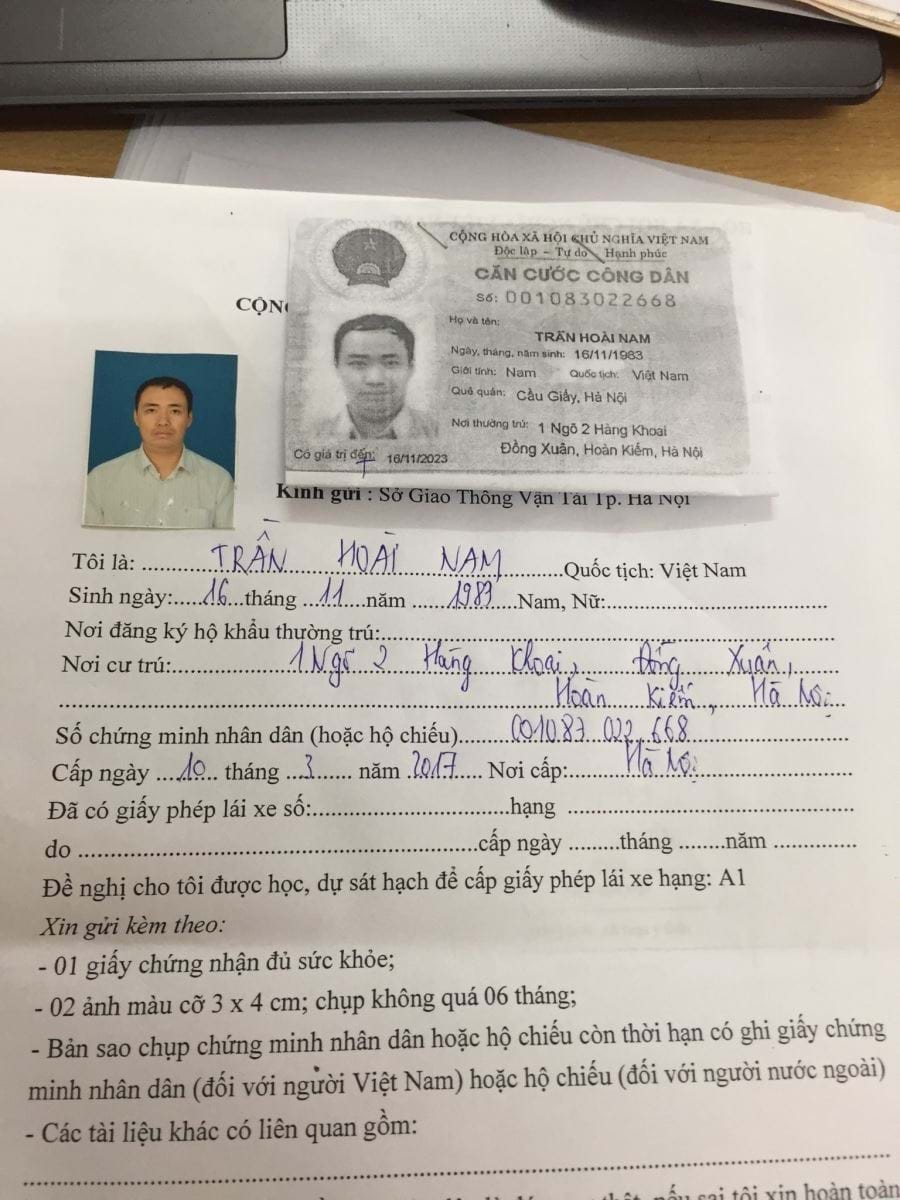 CỘNG HÒA XÃ HỘI CHỦ NGHĨA VIỆT NAM
Độc lập - Tự do - Hạnh phúc
CĂN CƯỚC CÔNG DÂN
Số: 001083022668
Họ và tên:
TRẦN HOÀI NAM
Ngày, tháng, năm sinh: 16/11/1983
Giới tính: Nam Quốc tịch: Việt Nam
Quê quán: Cầu Giấy, Hà Nội
Nơi thường trú: 1 Ngõ 2 Hàng Khoai
Đồng Xuân, Hoàn Kiếm, Hà Nội
Có giá trị đến: 16/11/2023
CỘN
Kính gửi : Sở Giao Thông Vận Tải Tp. Hà Nội
Tôi là: TRẦN HOÀI NAM Quốc tịch: Việt Nam
Sinh ngày: 16 tháng 11 năm 1983 Nam, Nữ:
Nơi đăng ký hộ khẩu thường trú:
Nơi cư trú: 1 Ngõ 2 Hàng Khoai, Đồng Xuân,
Hoàn Kiếm, Hà Nội
Số chứng minh nhân dân (hoặc hộ chiếu) 001083 022 668
Cấp ngày 10 tháng 3 năm 2017 Nơi cấp: Hà Nội
Đã có giấy phép lái xe số: hạng
do cấp ngày tháng năm
Đề nghị cho tôi được học, dự sát hạch để cấp giấy phép lái xe hạng: A1
Xin gửi kèm theo:
- 01 giấy chứng nhận đủ sức khỏe;
- 02 ảnh màu cỡ 3 x 4 cm; chụp không quá 06 tháng;
- Bản sao chụp chứng minh nhân dân hoặc hộ chiếu còn thời hạn có ghi giấy chứng
minh nhân dân (đối với người Việt Nam) hoặc hộ chiếu (đối với người nước ngoài)
- Các tài liệu khác có liên quan gồm:
thật, nếu sai tôi xin hoàn toàn